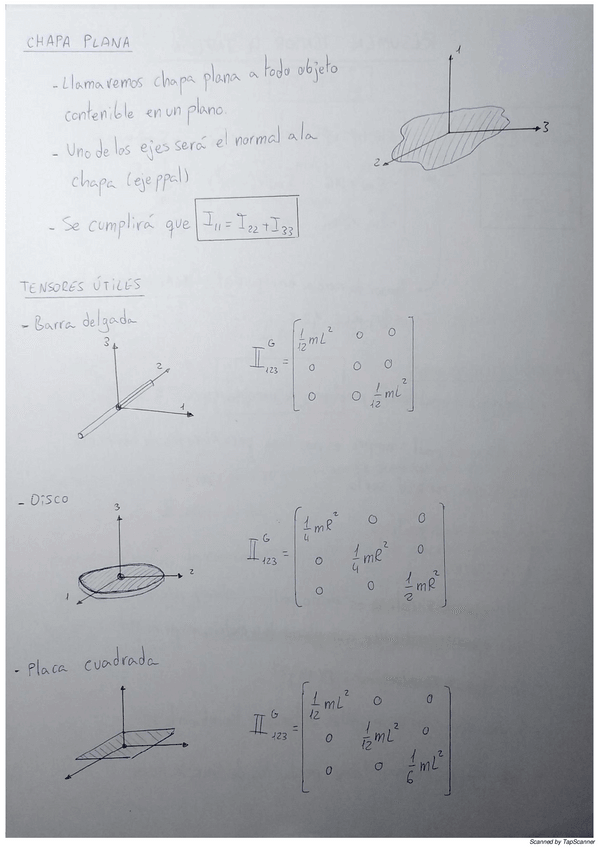 CHAPA PLANA
- Llamaremos chapa plana a todo objeto
contenible en un plano.
- Uno de los ejes será el normal a la
chapa (eje ppal)
- Se cumplirá que I₁₁ = I₂₂ + I₃₃
1
2
3
TENSORES ÚTILES
- Barra delgada
3
2
1
II^G_123 =
1/12 mL² 0 0
0 0 0
0 0 1/12 mL²
- Disco
3
2
1
II^G_123 =
1/4 mR² 0 0
0 1/4 mR² 0
0 0 1/2 mR²
- Placa cuadrada
II^G_123 =
1/12 mL² 0 0
0 1/12 mL² 0
0 0 1/6 mL²
Scanned by TapScanner